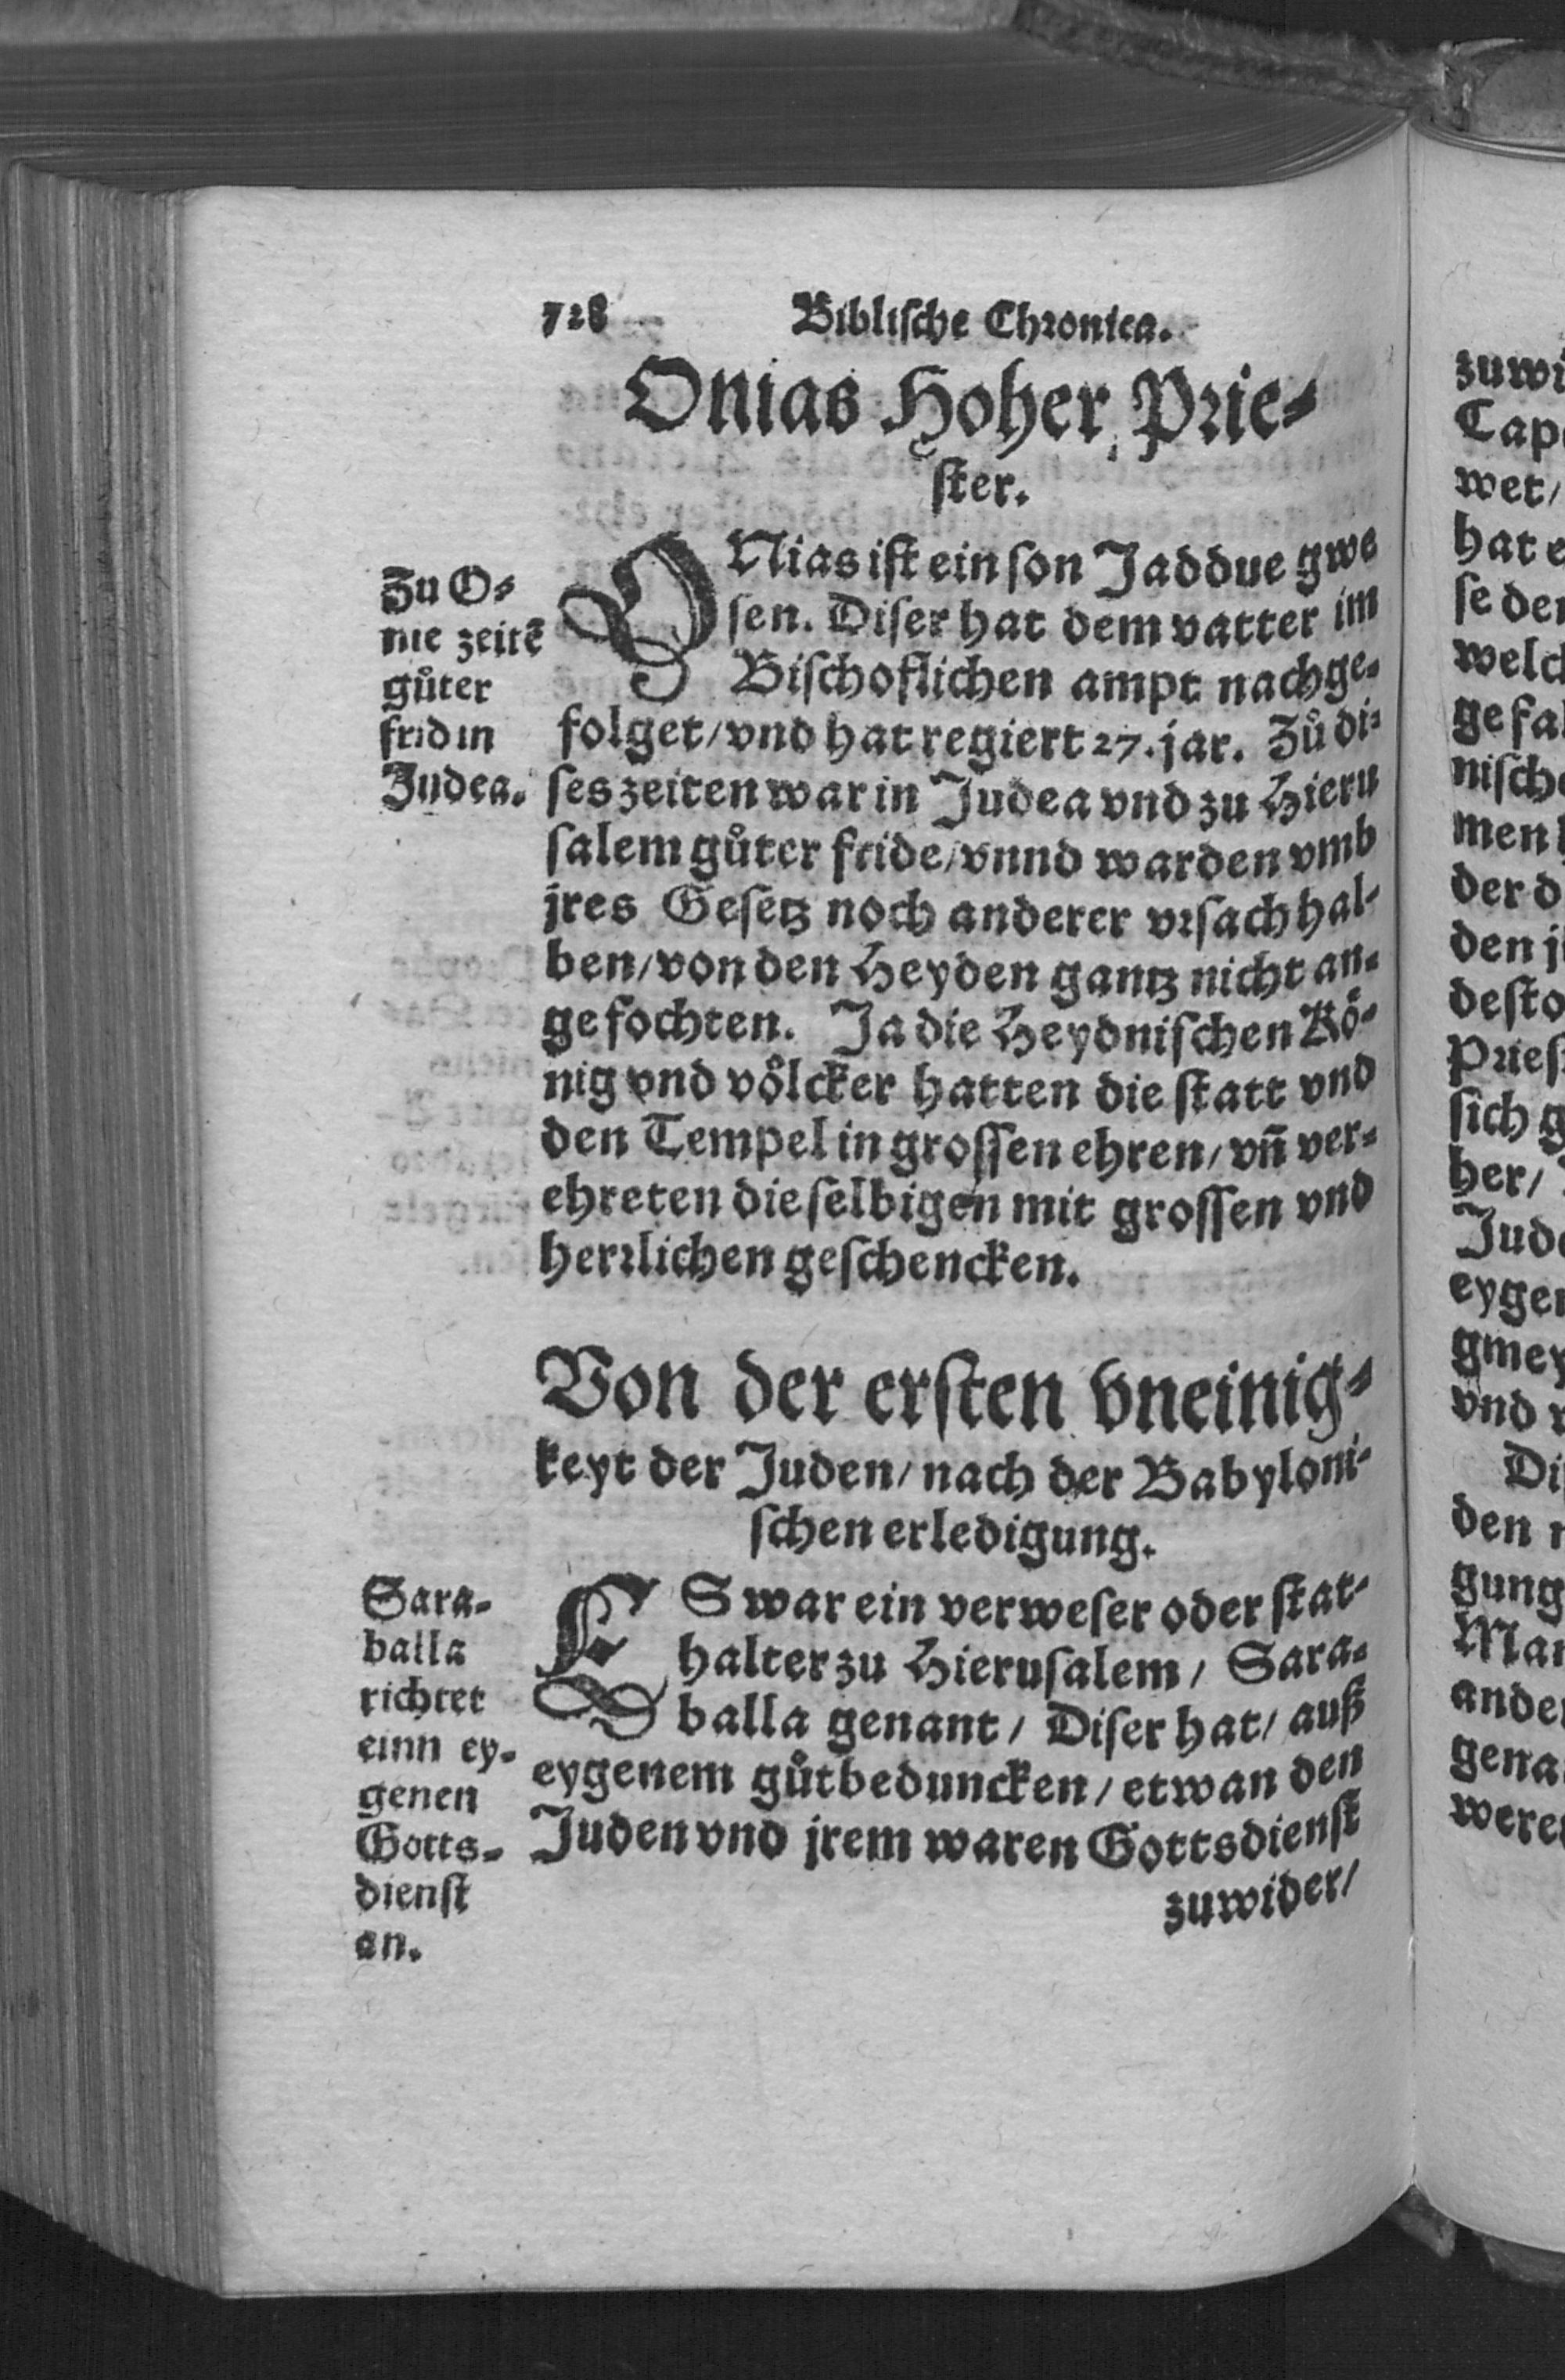 728 Biblische Chronica.
Onias Hoher Prie-
ster.
Zu O-
nie zeitẽ
gůter
frid in
Judea.
ONias ist ein son Jaddue gwe
sen. Diser hat dem vatter im
Bischoflichen ampt nachge-
folget/ vnd hat regiert 27. jar. Zů di-
ses zeiten war in Judea vnd zu Hieru
salem gůter fride/ vnnd warden vmb
jres Gesetz noch anderer vrsach hal-
ben/ von den Heyden gantz nicht an-
gefochten. Ja die Heydnischen Kö-
nig vnd völcker hatten die statt vnd
den Tempel in grossen ehren/ vn̄ ver-
ehreten dieselbigen mit grossen vnd
herrlichen geschencken.
Von der ersten vneinig-
keyt der Juden/ nach der Babyloni-
schen erledigung.
Sara-
balla
richtet
einn ey-
genen
Gotts-
dienst
an.
ES war ein verweser oder stat-
halter zu Hierusalem/ Sara-
balla genant/ Diser hat/ auß
eygenem gůtbeduncken/ etwan den
Juden vnd jrem waren Gottsdienst
zuwider/